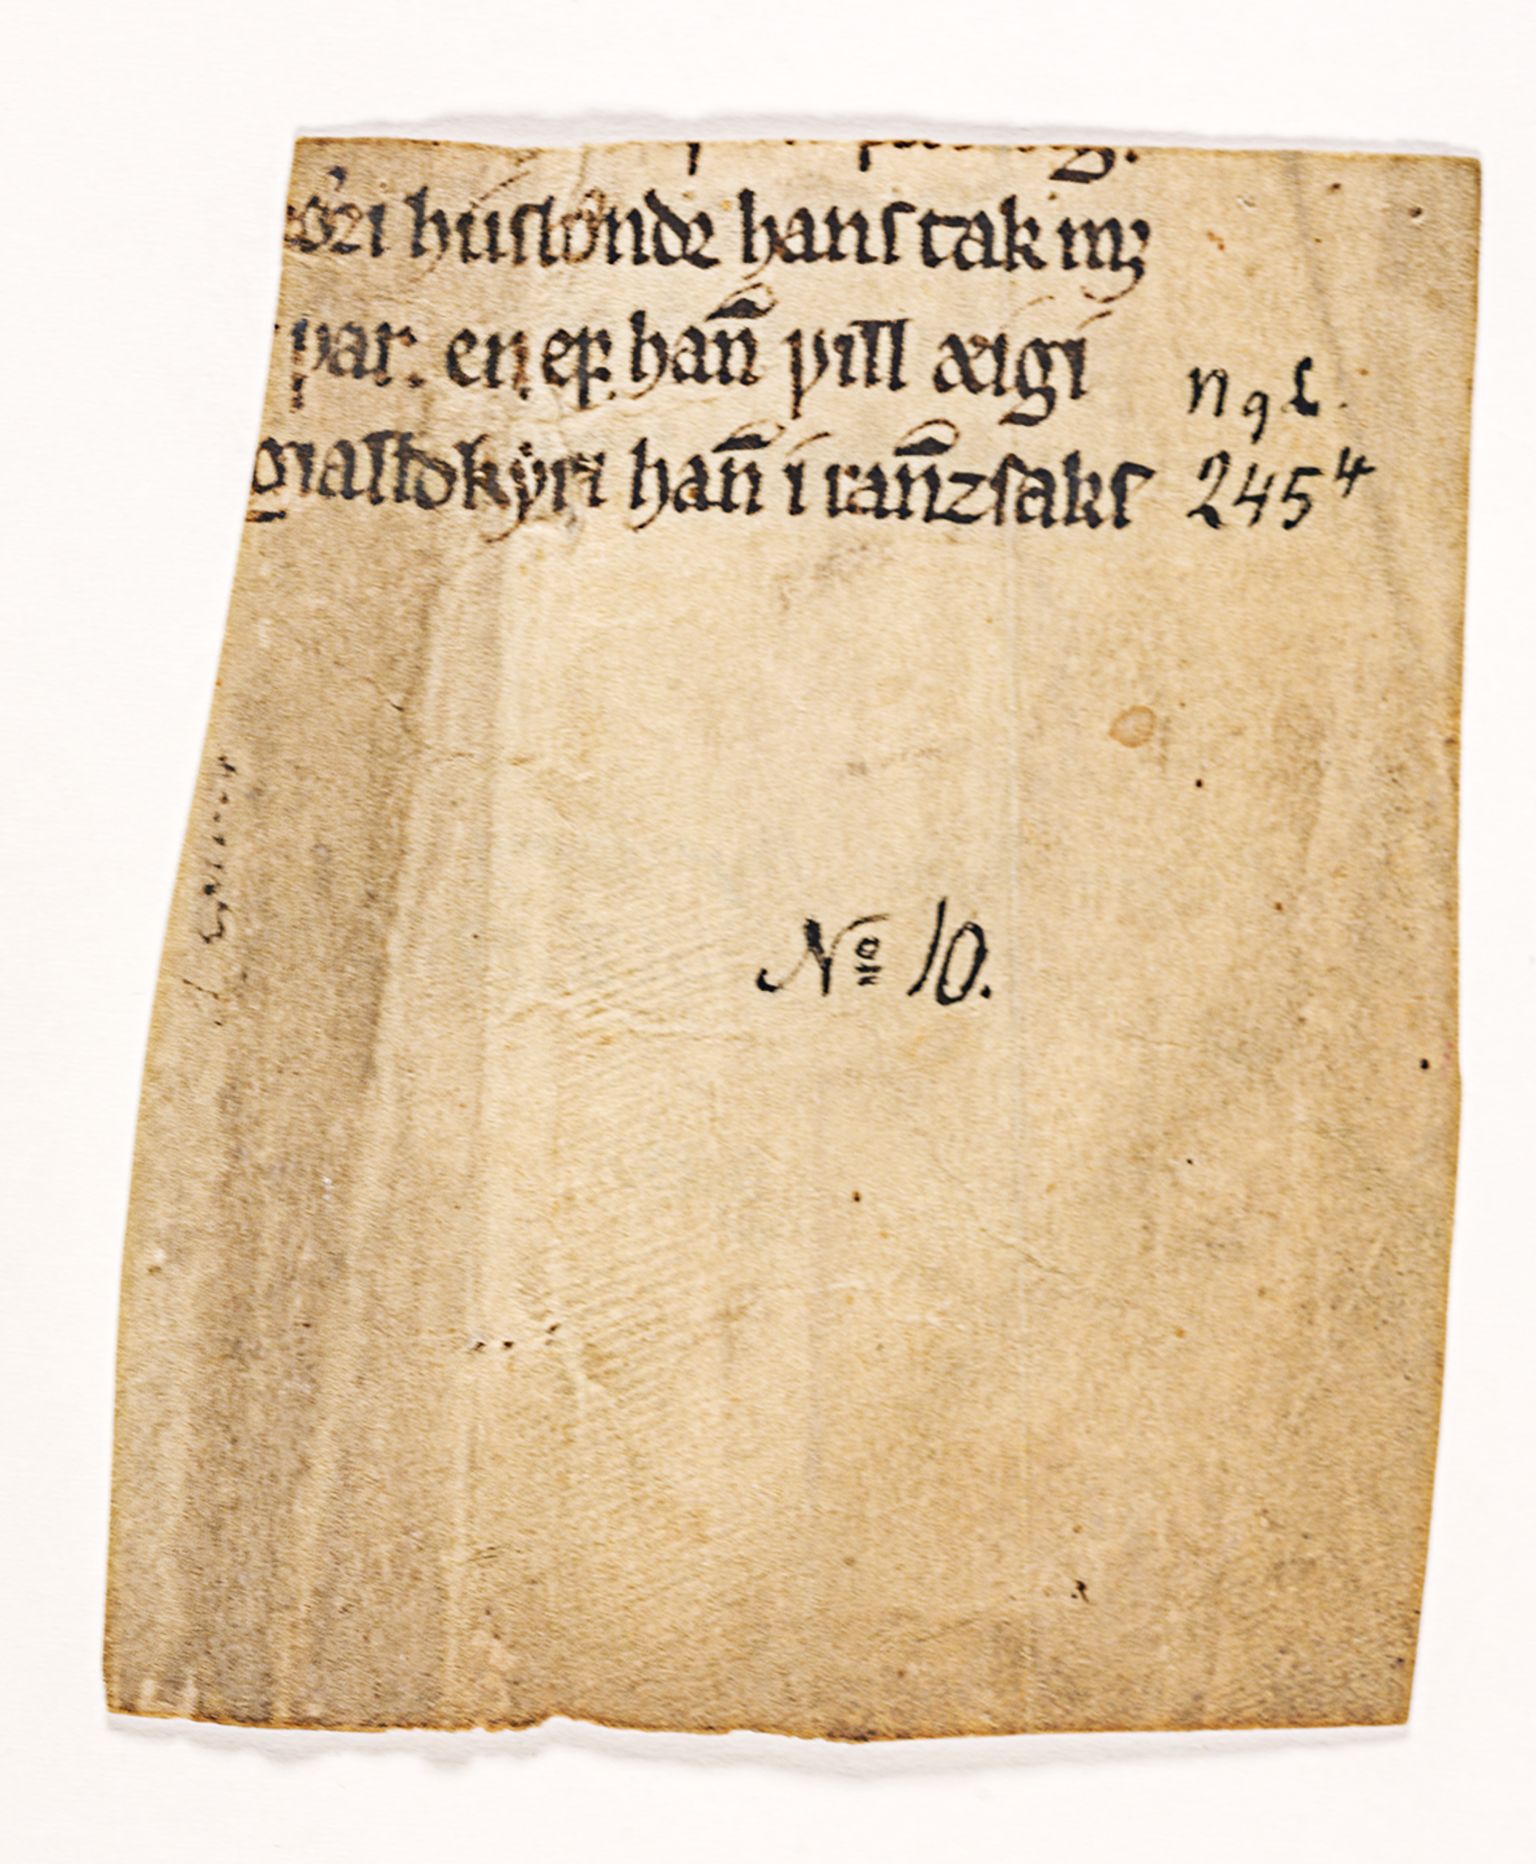 huſbonde hanſ tak mꝫ
var. en eꝼ. han̄ vill æigi
gialldkyri han̄ i ran̄zſakſ
n g L.
245⁴
Nº 10.